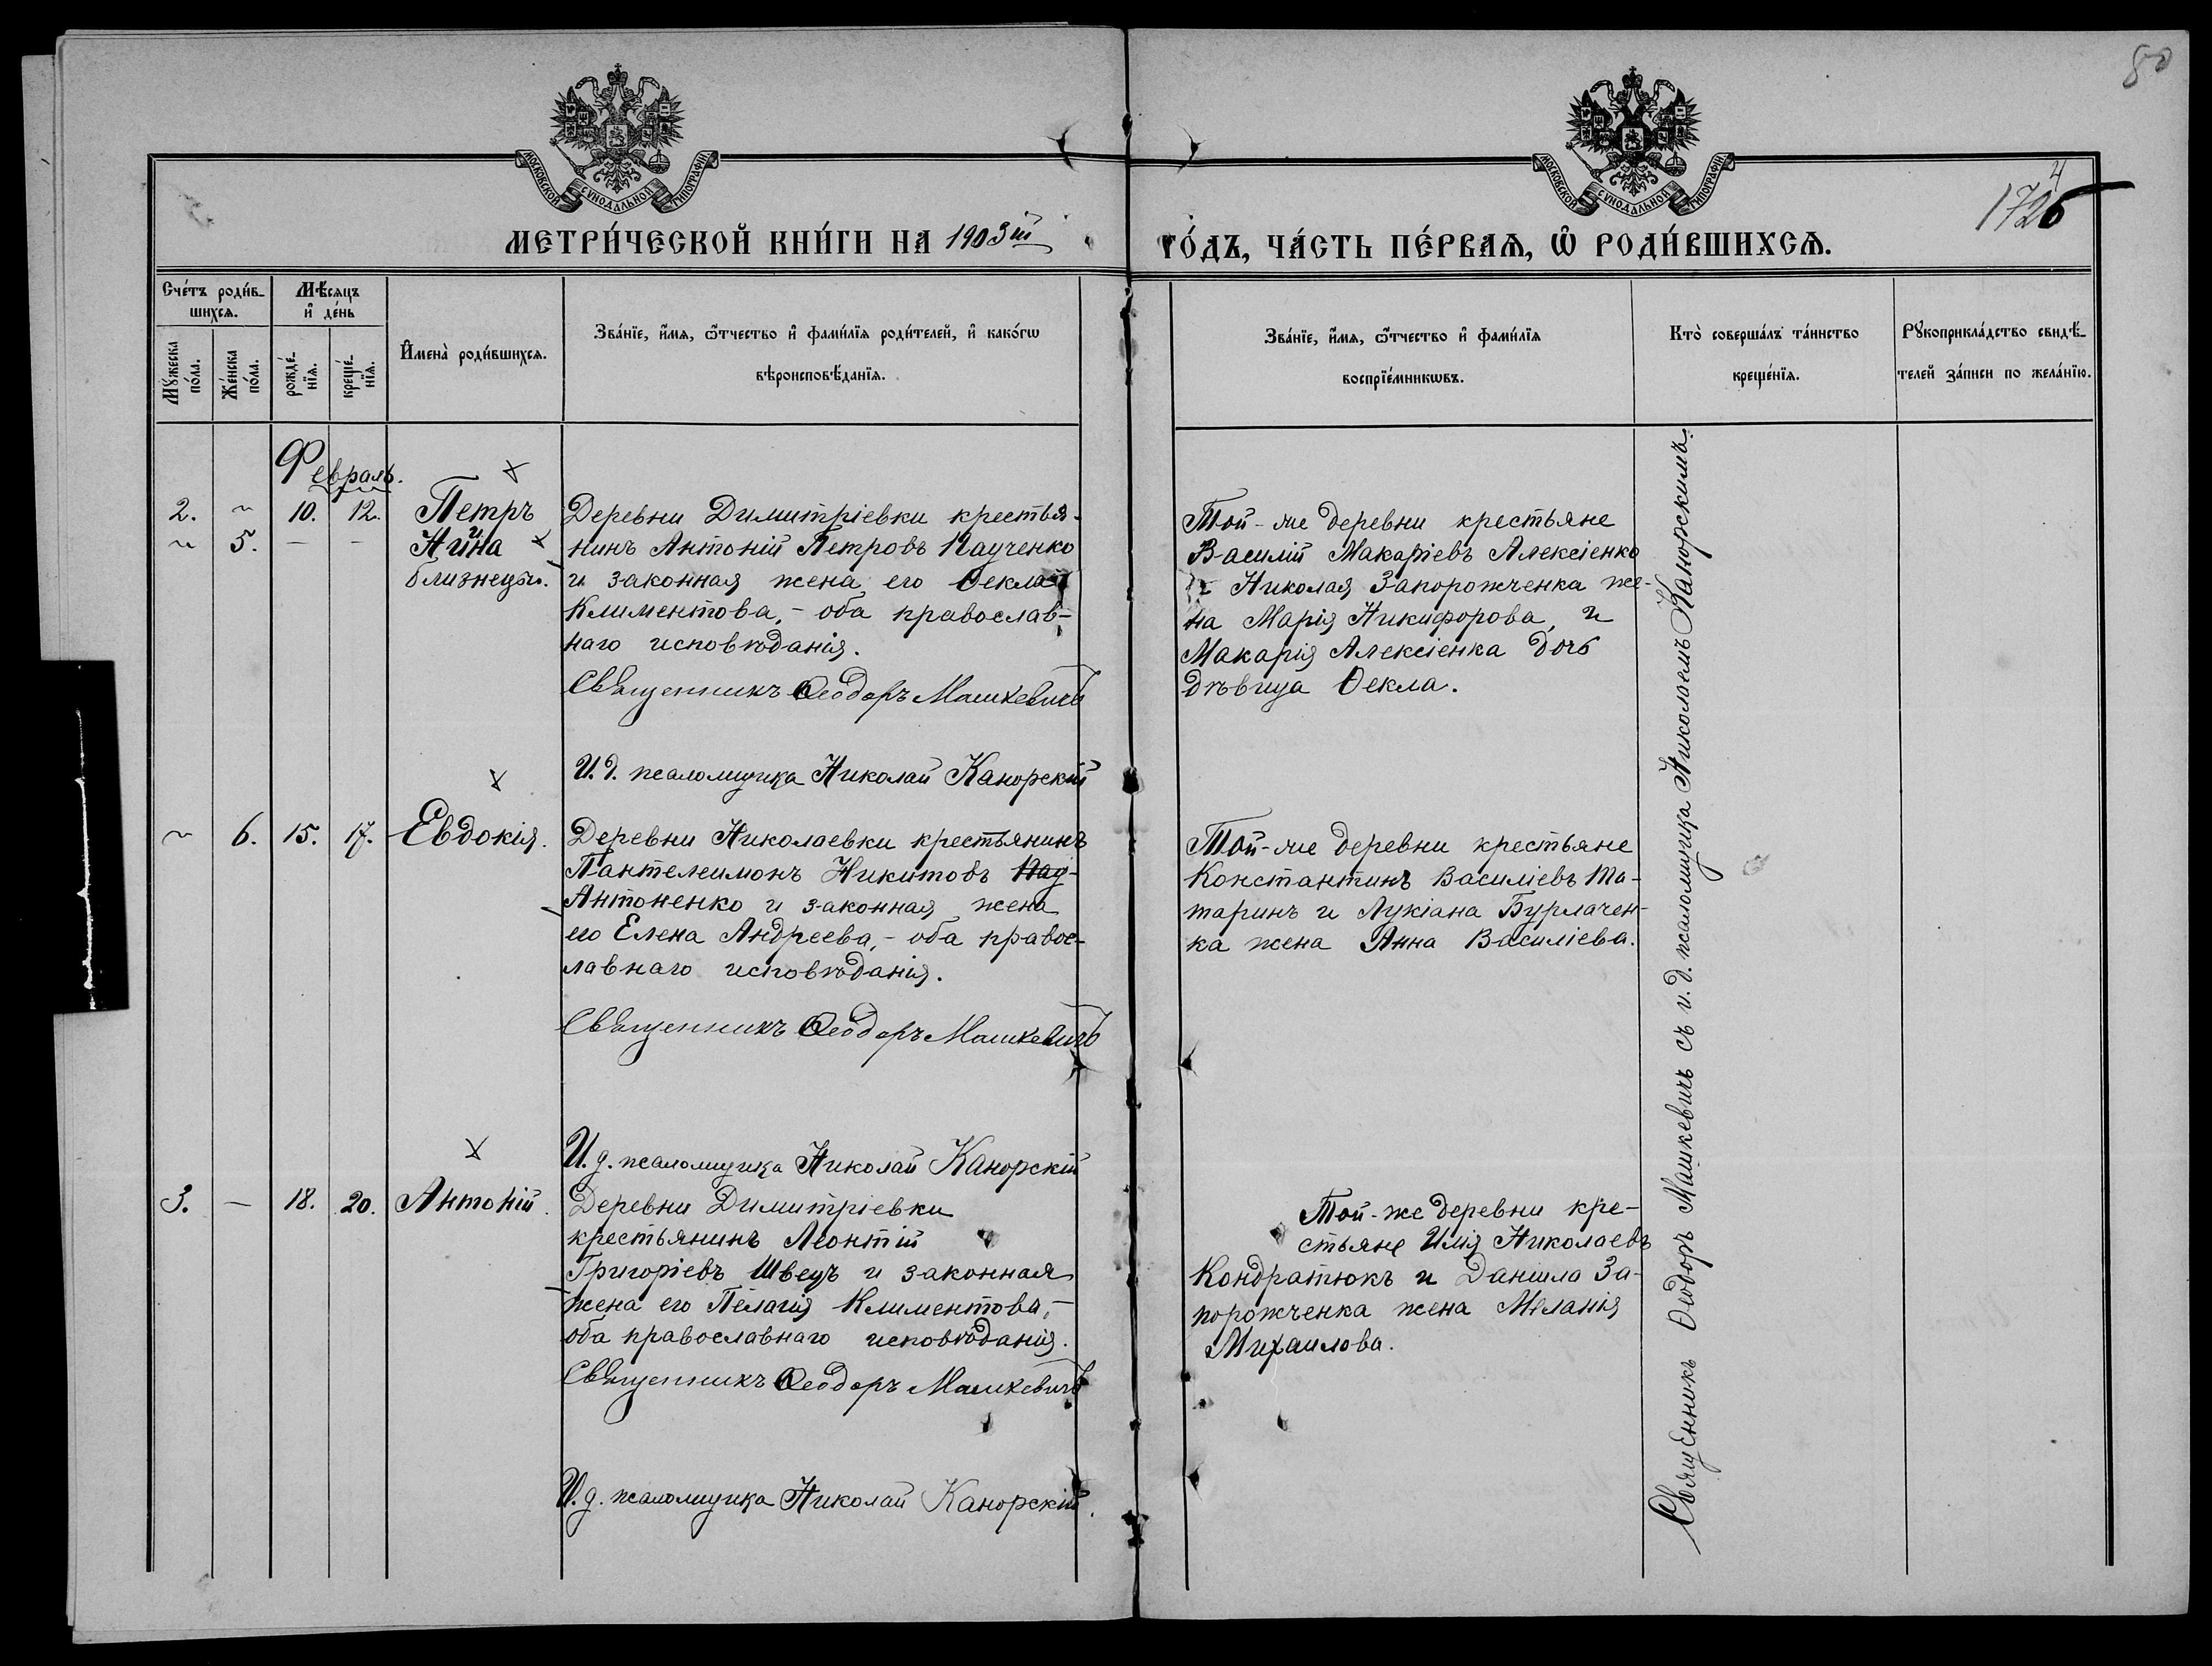 80
МОСКОВСКОЙ СѴНОДАЛЬНОЙ ТИПОГРАФІИ.
МОСКОВСКОЙ СѴНОДАЛЬНОЙ ТИПОГРАФІИ.
4
МЕТРИ́ЧЕСКОЙ КНИ́ГИ НА 1903й ГО́ДЪ, ЧА́СТЬ ПЕ́РВАѦ, Ѡ РОДИ́ВШИХСѦ.
Сче́тъ роди́в-
шихсѧ.
Мѣ́сяцъ
и҆ де́нь
Мꙋ́жеска
по́ла.
Же́нска
по́ла.
рожде́-
нїѧ.
креще́-
нїѧ.
И҆мена̀ роди́вшихсѧ.
Зва́нїе, и҆́мѧ, ѻ҆́тчество и҆ фами́лїѧ роди́телей, и҆ како́гѡ
вѣроисповѣ́данїѧ.
Зва́нїе, и҆́мѧ, ѻ҆́тчество и҆ фами́лїѧ
воспрїе́мникѡвъ.
Кто̀ соверша́лъ та́инство
креще́нїѧ.
Рꙋкоприкла́дство свидѣ́-
телей за́писи по жела́нїю.
Февраль.
2. ~ 10. 12. Петръ
~ 5. — — Нина
близнецы.
Деревни Димитріевки крестья-
нинъ Антоній Петровъ Паученко
и законная жена его Ѳекла
Климентова, - оба православ-
наго исповѣданія.
Священникъ Ѳеодоръ Машкевичъ
И. д. псаломщика Николай Канорскій
Той-же деревни крестьяне
Василій Макаріевъ Алексіенко
и Николая Запорожченка же-
на Марія Никифорова, и
Макарія Алексіенка дочь
дѣвица Ѳекла.
~ 6. 15. 17. Евдокія.
Деревни Николаевки крестьянинъ
Пантелеимонъ Никитовъ Пау-
Антоненко и законная жена
его Елена Андреева, - оба правос-
лавнаго исповѣданія.
Священникъ Ѳеодоръ Машкевичъ
И. д. псаломщика Николай Канорскій
Той-же деревни крестьяне
Константинъ Василіевъ Та-
таринъ и Лукіана Бурлачен-
ка жена Анна Василіева.
3. — 18. 20. Антоній.
Деревни Димитріевки
крестьянинъ Леонтій
Григоріевъ Швецъ и законная
жена его Пелагія Климентова, -
оба православнаго исповѣданія.
Священникъ Ѳеодоръ Машкевичъ
И. д. псаломщика Николай Канорскій.
Той-же деревни кре-
стьяне Илія Николаевъ
Кондратюкъ и Даниила За-
порожченка жена Меланія
Михаилова.
Священникъ Ѳеодоръ Машкевичъ съ и. д. псаломщика Николаемъ Канорскимъ.